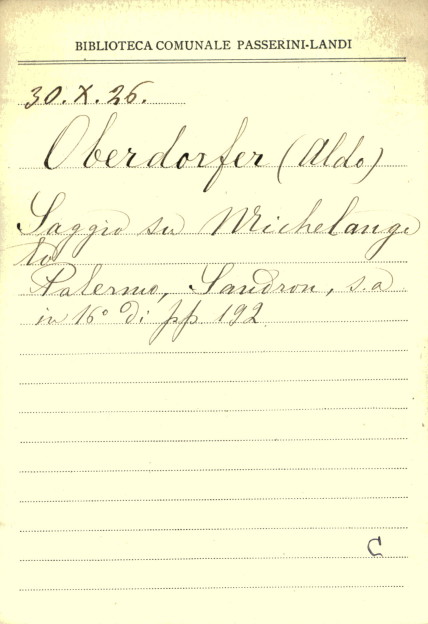 BIBLIOTECA COMUNALE PASSERINI-LANDI
30.X.26.
Oberdorfer (Aldo)
Saggio su Michelange
lo
Palermo, Sandron, s.a
in 16° di pp. 192
C